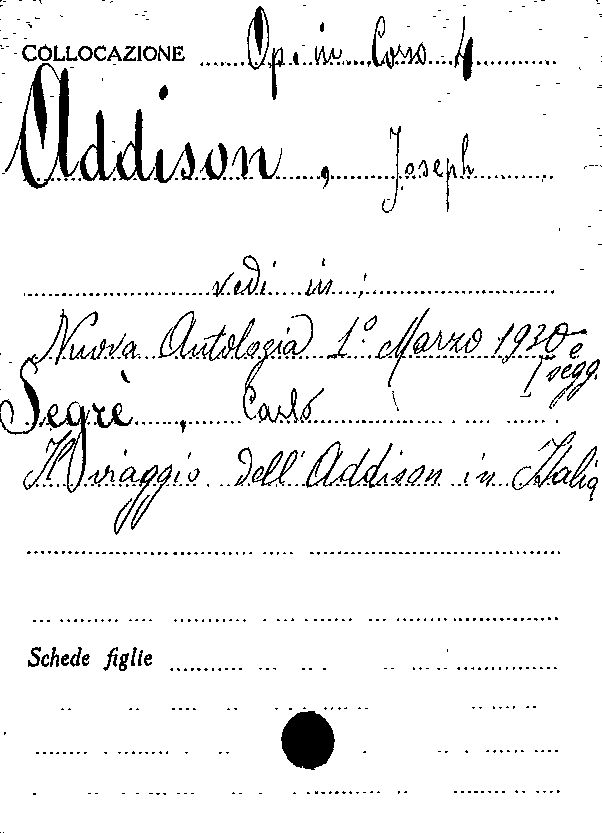 COLLOCAZIONE Op. in Corso 4
Addison, Joseph
vedi in:
Nuova Antologia 1° Marzo 1930 e
segg.
Segrè, Carlo
Il viaggio dell'Addison in Italia
Schede figlie